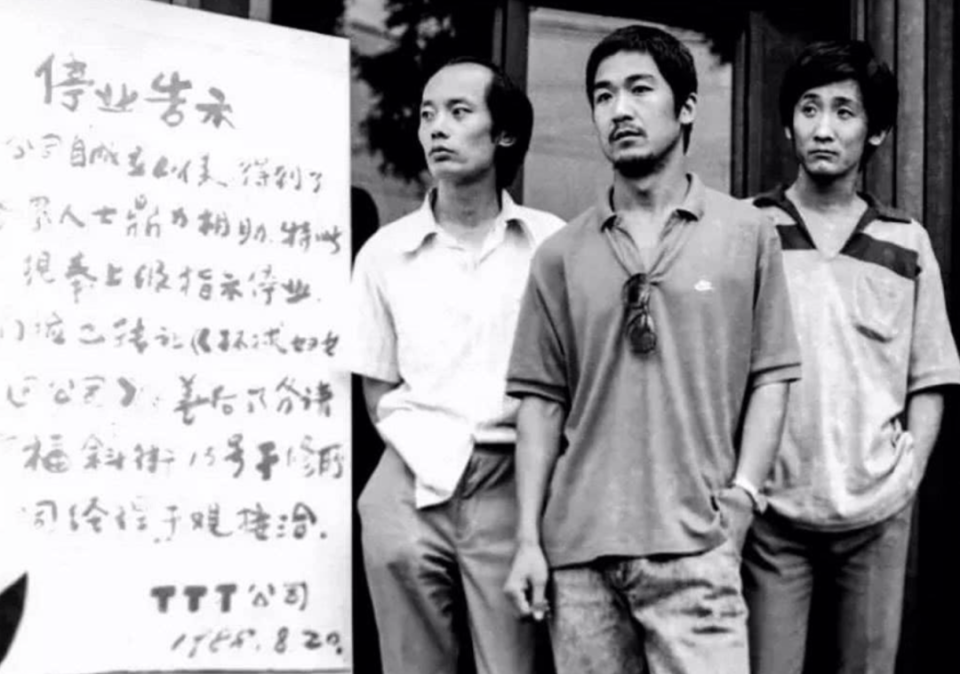 停业告示
公司自成立以来,得到了
界人士鼎力相助,特此
现奉上级指示停业.
已转让《环球妇女
公司》,善后 请
福斜街15号
司经理于观接洽.
TTT公司
1988.8.20.